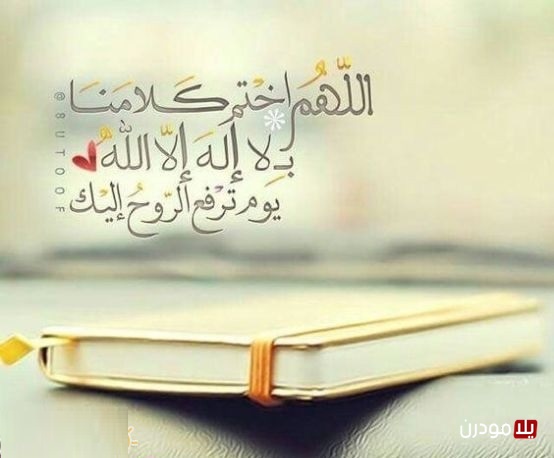 اللَّهُم اخْتِم كَلامَنَا
بِـ لا إلَهَ إلاّ اللهُ
يوم تَرْفع الرّوحُ إليْك
@8UTOOF
يلا مودرن